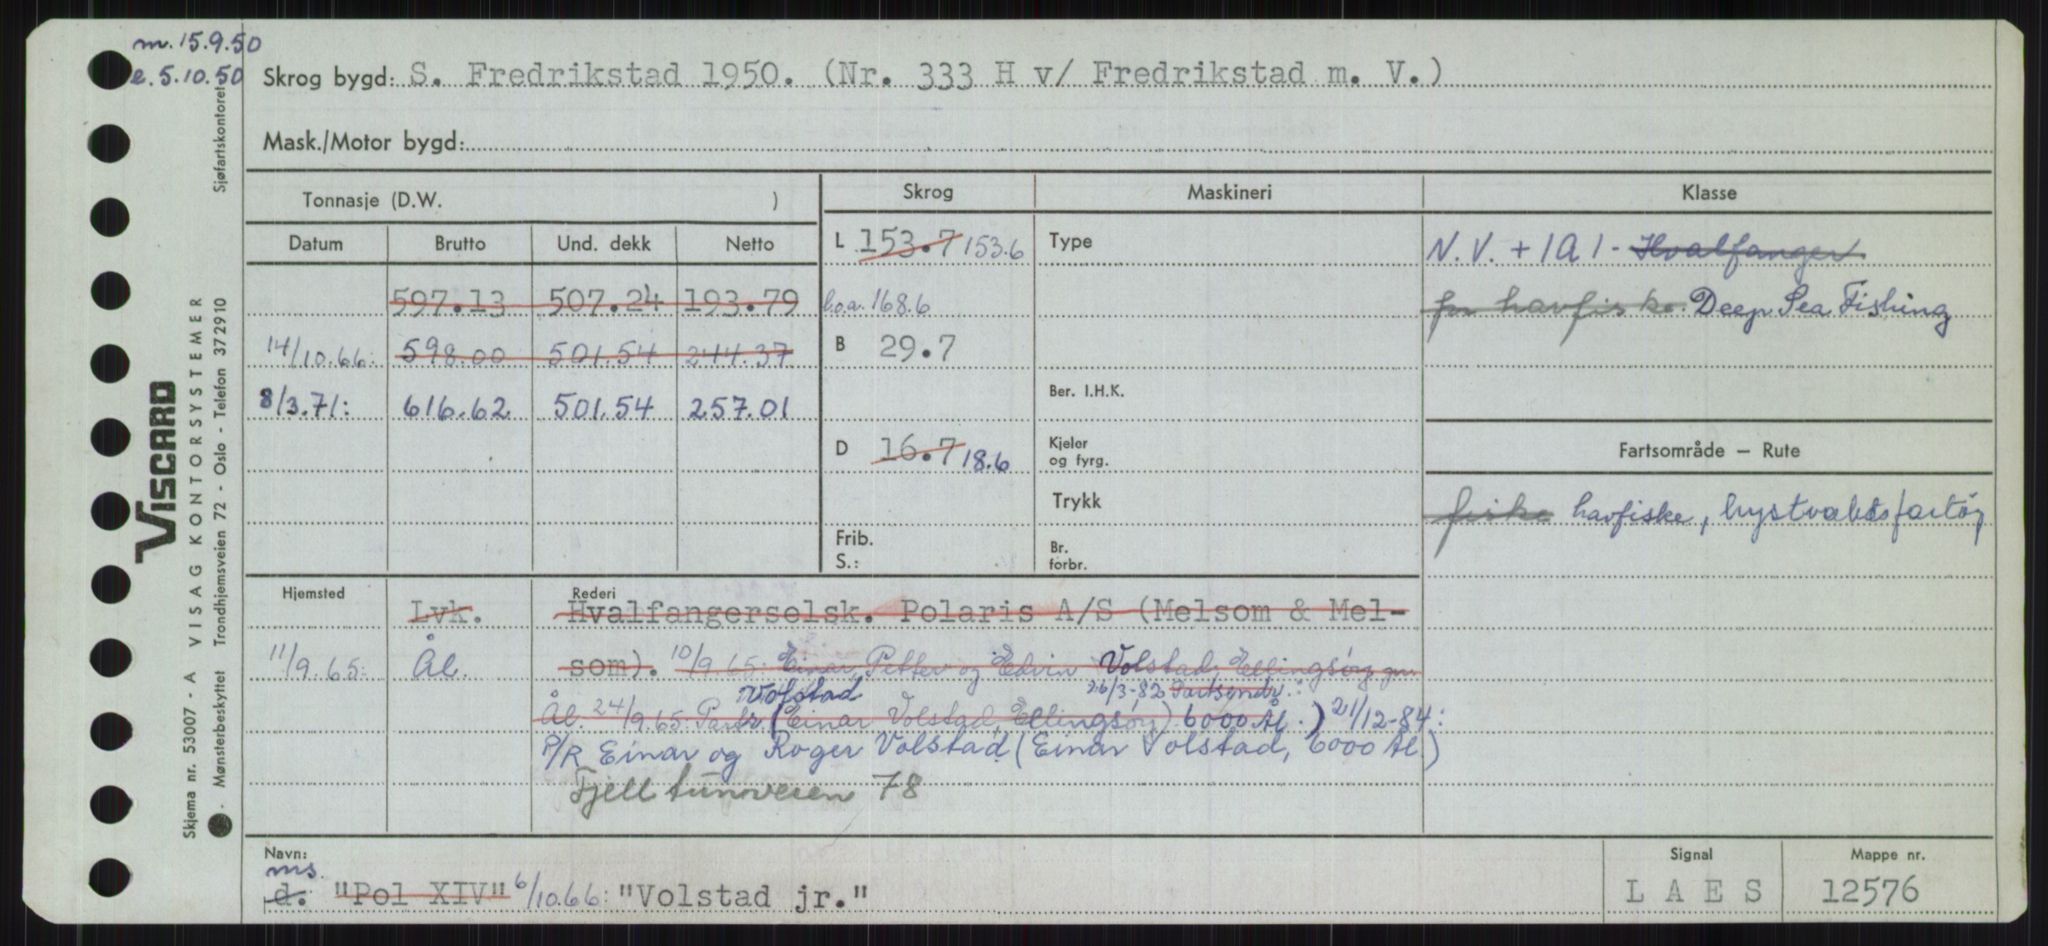 m. 15.9.50
e. 5.10.50
Skrog bygd: S. Fredrikstad 1950. (Nr. 333 H v/ Fredrikstad m. V.)
Mask./Motor bygd:
Tonnasje (D.W. )
Skrog
Maskineri
Klasse
Datum Brutto Und. dekk Netto
L 153.7 153.6
Type
N.V. + 1A1 - Hvalfanger
597.13 507.24 193.79
l.o.a. 168.6
for havfiske. Deep Sea Fishing
14/10.66: 598.00 501.54 244.37
B 29.7
8/3.71: 616.62 501.54 257.01
Ber. I.H.K.
D 16.7 18.6
Kjeler
og fyrg.
Fartsområde – Rute
Trykk
fiske havfiske,
Frib.
S.:
Br.
forbr.
Hjemsted
Rederi
Lvk. Hvalfangerselsk. Polaris A/S (Melsom & Mel-
11/9.65: Ål. som). 10/9.65: Einar, Petter og Edvin Volstad, Ellingsøy
Volstad 26/3-82 Partsendr.:
Ål. 24/9.65: Partr. (Einar Volstad, Ellingsøy) 6000 Ål.) 21/12-84:
P/R Einar og Roger Volstad (Einar Volstad, 6000 Ål.)
Fjelltunveien 78
Navn:
ms.
d. "Pol XIV" 6/10.66: "Volstad jr."
Signal
L A E S
Mappe nr.
12576
VISCARD
Skjema nr. 53007 - A VISAG KONTORSYSTEMER
Mønsterbeskyttet Trondhjemsveien 72 - Oslo - Telefon 372910 Sjøfartskontoret